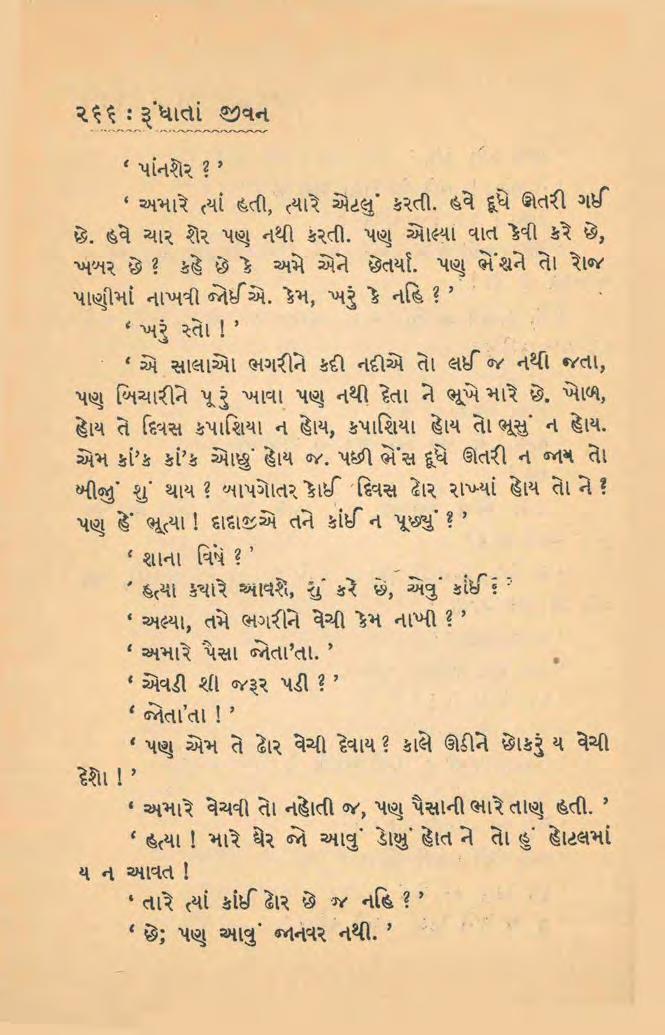 ૨૬૬ : રૂંધાતાં જીવન
‘ પાંનશેર ? ’
‘ અમારે ત્યાં હતી, ત્યારે એટલું કરતી. હવે દૂધે ઊતરી ગઈ
છે. હવે ચાર શેર પણ નથી કરતી. પણ ઓલ્યા વાત કેવી કરે છે,
ખબર છે ? કહે છે કે અમે એને છેતર્યા. પણ ભેંશને તો રોજ
પાણીમાં નાખવી જોઈએ. કેમ, ખરું કે નહિ ? ’
‘ ખરું સ્તો ! ’
‘ એ સાલાઓ ભગરીને કદી નદીએ તો લઈ જ નથી જતા,
પણ બિચારીને પૂરું ખાવા પણ નથી દેતા ને ભૂખે મારે છે. ખોળ,
હોય તે દિવસ કપાશિયા ન હોય, કપાશિયા હોય તો ભૂસું ન હોય.
એમ કાં’ક કાં’ક ઓછું હોય જ. પછી ભેંસ દૂધે ઊતરી ન જાય તો
બીજું શું થાય ? બાપગોતર કોઈ દિવસ ઢોર રાખ્યાં હોય તો ને ?
પણ હેં ભૂત્યા ! દાદાજીએ તને કાંઈ ન પૂછ્યું ? ’
‘ શાના વિષે ? ’
‘ હત્યા ક્યારે આવશે, શું કરે છે, એવું કાંઈ ? ’
‘ અલ્યા, તમે ભગરીને વેચી કેમ નાખી ? ’
‘ અમારે પૈસા જોતા’તા. ’
‘ એવડી શી જરૂર પડી ? ’
‘ જોતા’તા ! ’
‘ પણ એમ તે ઢોર વેચી દેવાય ? કાલે ઊડીને છોકરું ય વેચી
દેશો ! ’
‘ અમારે વેચવી તો નહોતી જ, પણ પૈસાની ભારે તાણ હતી. ’
‘ હત્યા ! મારે ઘેર જો આવું ડોબું હોત ને તો હું હોટલમાં
ય ન આવત !
‘ તારે ત્યાં કાંઈ ઢોર છે જ નહિ ? ’
‘ છે; પણ આવું જાનવર નથી. ’